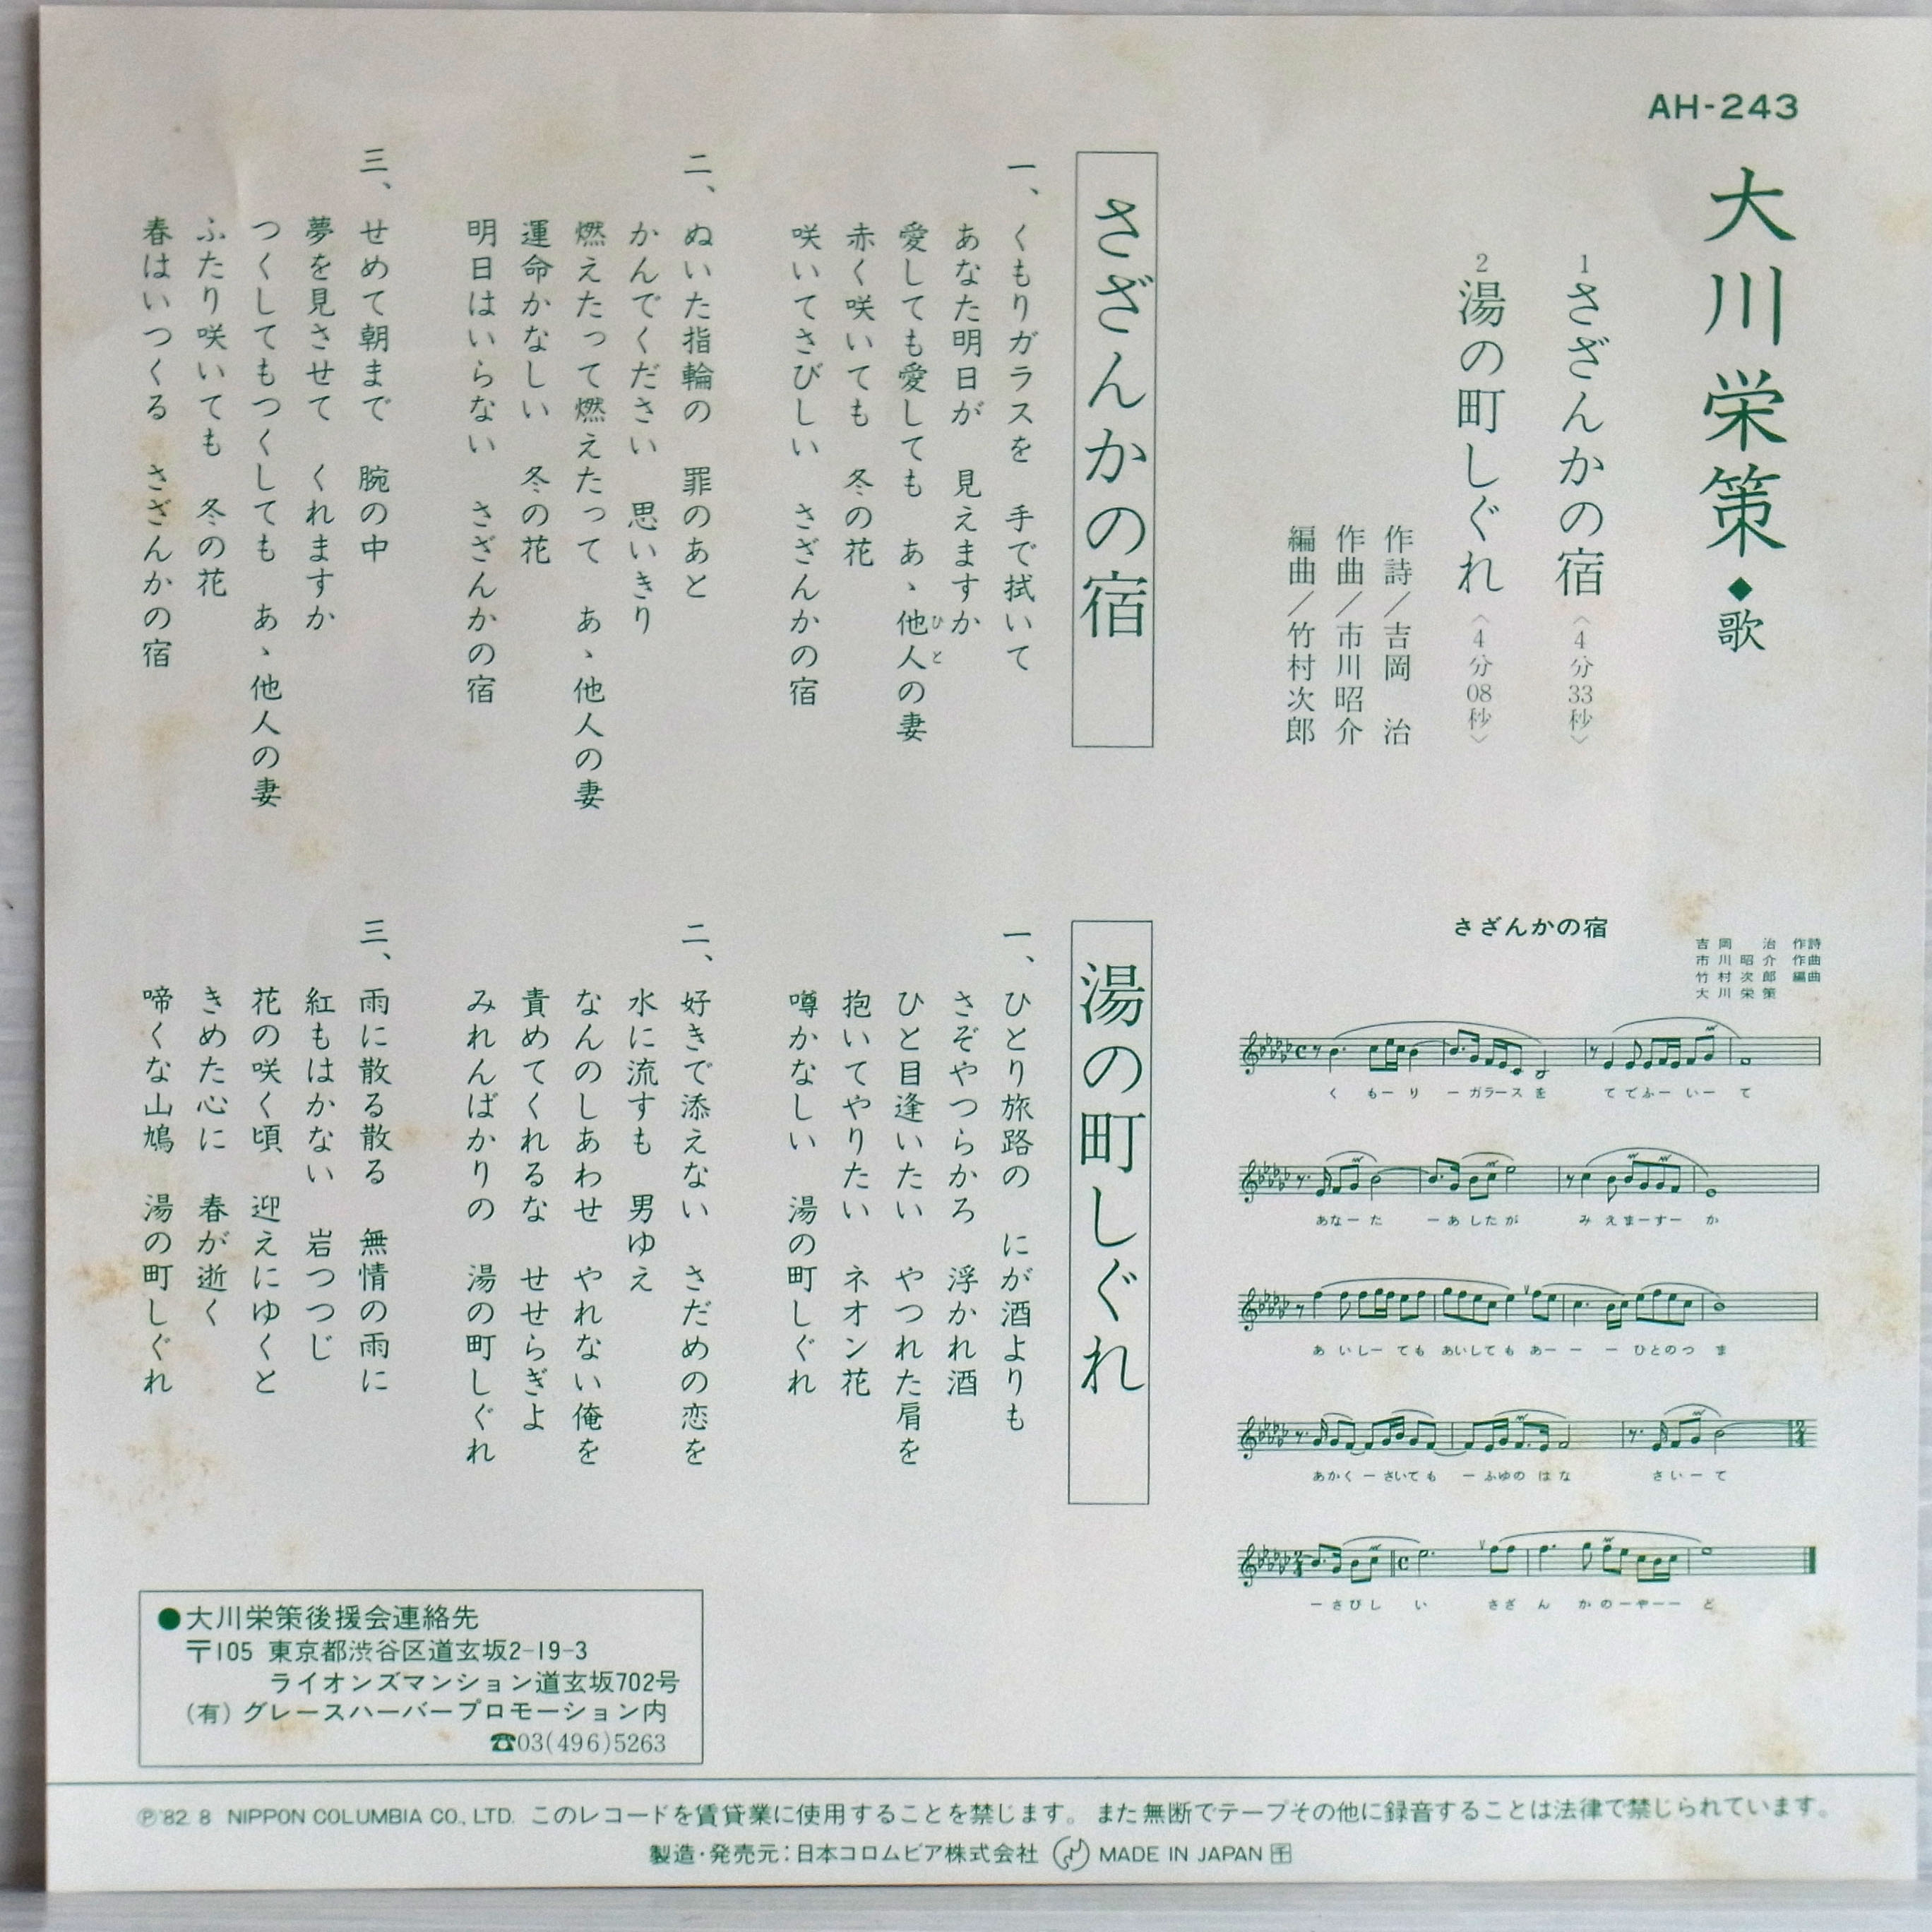 AH-243
大川栄策◆歌
1 さざんかの宿〈4分33秒〉
2 湯の町しぐれ〈4分08秒〉
作詩／吉岡　治
作曲／市川昭介
編曲／竹村次郎
さざんかの宿
一、くもりガラスを　手で拭いて
あなた明日が　見えますか
愛しても愛しても　あゝ他人の妻
ひと
赤く咲いても　冬の花
咲いてさびしい　さざんかの宿
二、ぬいた指輪の　罪のあと
かんでください　思いきり
燃えたって燃えたって　あゝ他人の妻
運命かなしい　冬の花
明日はいらない　さざんかの宿
三、せめて朝まで　腕の中
夢を見させて　くれますか
つくしてもつくしても　あゝ他人の妻
ふたり咲いても　冬の花
春はいつくる　さざんかの宿
さざんかの宿
吉岡　治　作詩
市川昭介　作曲
竹村次郎　編曲
大川栄策
く　もー　り　ー　ガラース　を　て　でふー　いー　て
あなー　た　ー　あ　したが　み　え　まーすー　か
あ　いしー　ても　あいしても　あー　ー　ー　ひとのつ　ま
あかく　ー　さいても　ー　ふゆの　はな　さいー　て
ー　さびし　い　さざ　ん　かのーやーー　ど
湯の町しぐれ
一、ひとり旅路の　にが酒よりも
さぞやつらかろ　浮かれ酒
ひと目逢いたい　やつれた肩を
抱いてやりたい　ネオン花
噂かなしい　湯の町しぐれ
二、好きで添えない　さだめの恋を
水に流すも　男ゆえ
なんのしあわせ　やれない俺を
責めてくれるな　せせらぎよ
みれんばかりの　湯の町しぐれ
三、雨に散る散る　無情の雨に
紅もはかない　岩つつじ
花の咲く頃　迎えにゆくと
きめた心に　春が逝く
啼くな山鳩　湯の町しぐれ
●大川栄策後援会連絡先
〒105 東京都渋谷区道玄坂2-19-3
ライオンズマンション道玄坂702号
(有)グレースハーバープロモーション内
☎03(496)5263
Ⓟ'82.8 NIPPON COLUMBIA CO., LTD. このレコードを賃貸業に使用することを禁じます。また無断でテープその他に録音することは法律で禁じられています。
製造・発売元：日本コロムビア株式会社 MADE IN JAPAN 千